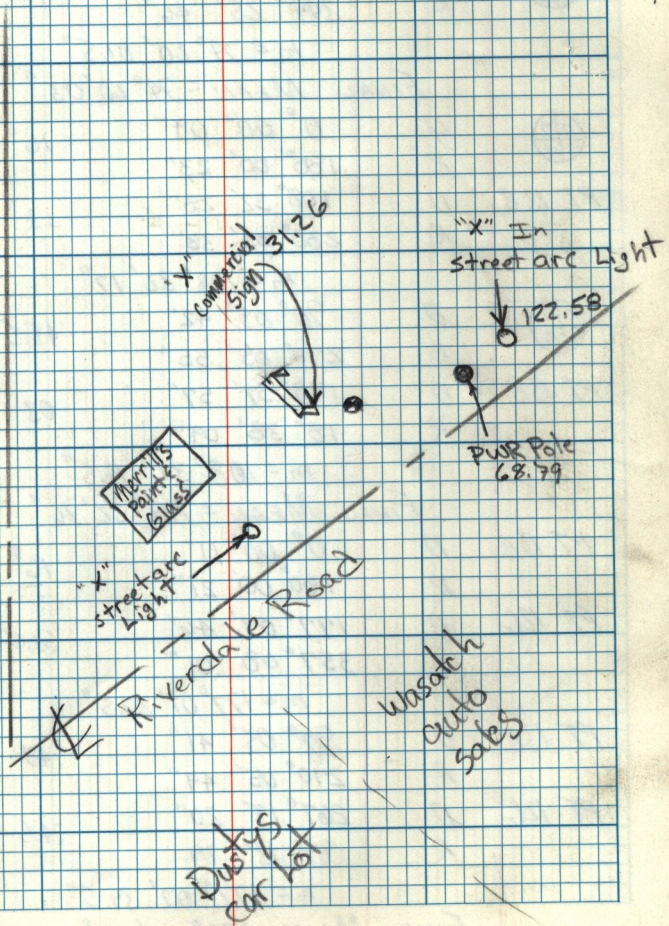 "X"
Commercial
Sign 31.26
"X" In
street arc Light
122.58
PWR Pole
68.79
Merrill's
Paint &
Glass
"X"
street arc
Light
Riverdale Road
Wasatch
auto
sales
Dustys
car Lot